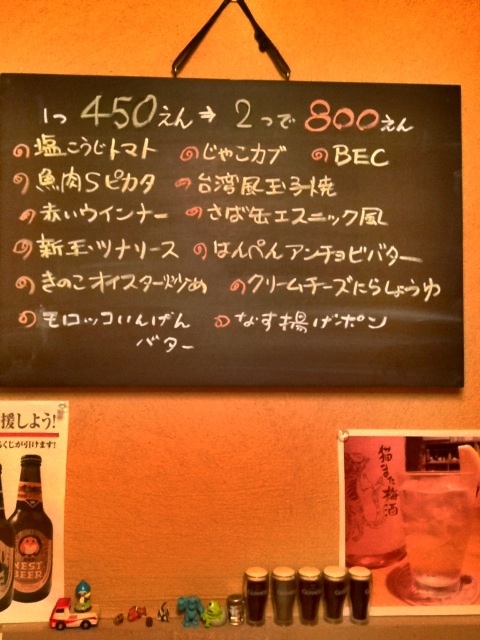 1つ 450えん ⇒ 2つで 800えん
塩こうじトマト じゃこカブ BEC
魚肉Sピカタ 台湾風玉子焼
赤いウインナー さば缶エスニック風
新玉ツナリース はんぺんアンチョビバター
きのこオイスター炒め クリームチーズにらしょうゆ
モロッコいんげん なす揚げポン
バター
援しよう!
くじが引けます!
NEST
BEER
猫また梅酒